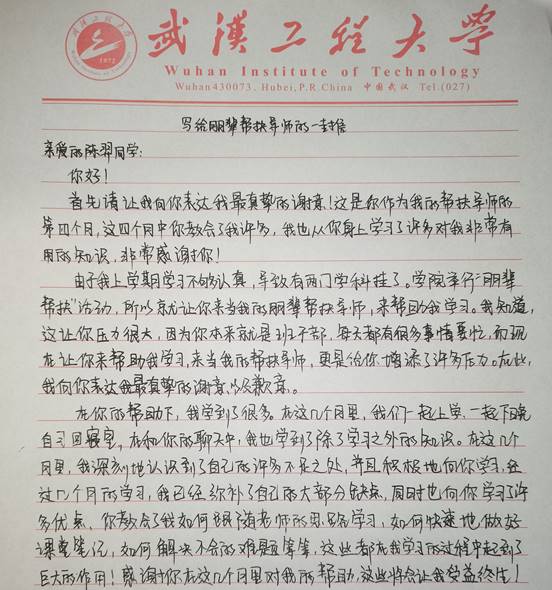 武汉工程大学
1972
武漢工程大学
Wuhan Institute of Technology
Wuhan 430073, Hubei, P.R.China 中国武汉 Tel:(027)
写给朋辈帮扶导师的一封信
亲爱的陈羿同学:
你好!
首先请让我向你表达我最真挚的谢意!这是你作为我的帮扶导师的
第四个月,这四个月中你教会了我许多,我也从你身上学习了许多对我非常有
用的知识,非常感谢你!
由于我上学期学习不够认真,导致有两门学科挂了。学院举行“朋辈
帮扶”活动,所以就让你来当我的朋辈帮扶导师,来帮助我学习。我知道,
这让你压力很大,因为你本来就是班干部,每天都有很多事情要忙,而现
在让你来帮助我学习,来当我的帮扶导师,更是给你增添了许多压力。在此,
我向你表达我最真挚的谢意以及歉意。
在你的帮助下,我学到了很多。在这几个月里,我们一起上学,一起下晚
自习回寝室,在和你的聊天中,我也学到了除了学习之外的知识。在这几个
月里,我深刻地认识到了自己的许多不足之处,并且积极地向你学习,经
过几个月的学习,我已经弥补了自己的大部分缺点,同时也向你学习了许
多优点,你教会了我如何跟随老师的思路学习,如何快速地做好
课堂笔记,如何解决不会的难题等等,这些都在我学习的过程中起到了
巨大的作用!感谢你在这几个月里对我的帮助,这些将会让我受益终生!